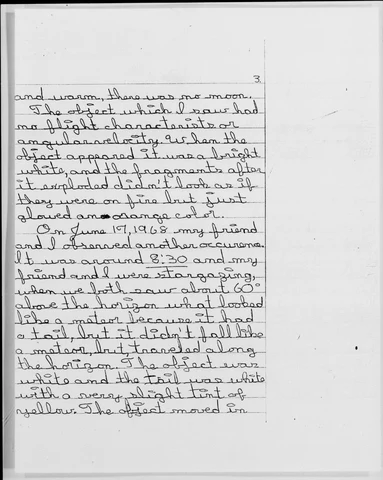 3.
and warm, there was no moon.
The object which I saw had
no flight characterists or
angular velocity. When the
object appeared it was a bright
white, and the fragments after
it exploded didn't look as if
they were on fire but just
glowed an orange color.
On June 17, 1968 my friend
and I observed another occurence.
It was around 8:30 and my
friend and I were stargazing,
when we both saw about 60°
above the horizon what looked
like a meteor because it had
a tail, but it didn't fall like
a meteor, but, traveled along
the horizon. The object was
white and the tail was white
with a very slight tint of
yellow. The object moved in